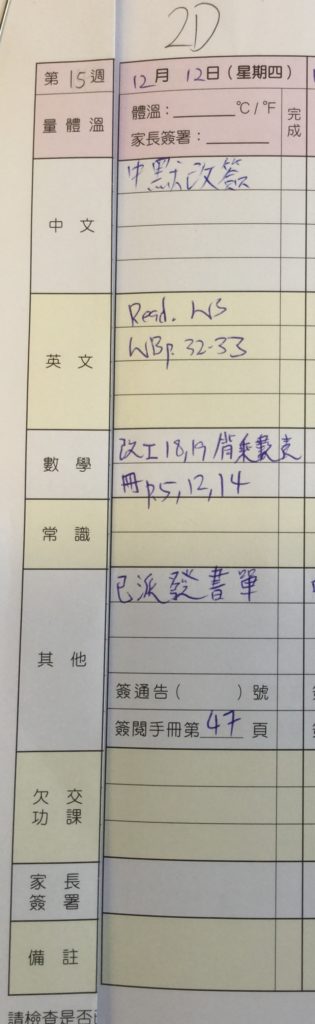 2D
第 15 週
12月 12日 (星期四)
量體溫
體溫：______°C / °F
家長簽署：______
完成
中文
中默改簽
英文
Read. WS
WBp. 32-33
數學
改工18,19 背乘數表
冊p.5, 12, 14
常識
其他
已派發書單
簽通告( )號
簽閱手冊第 47 頁
欠交功課
家長簽署
備註
請檢查是否